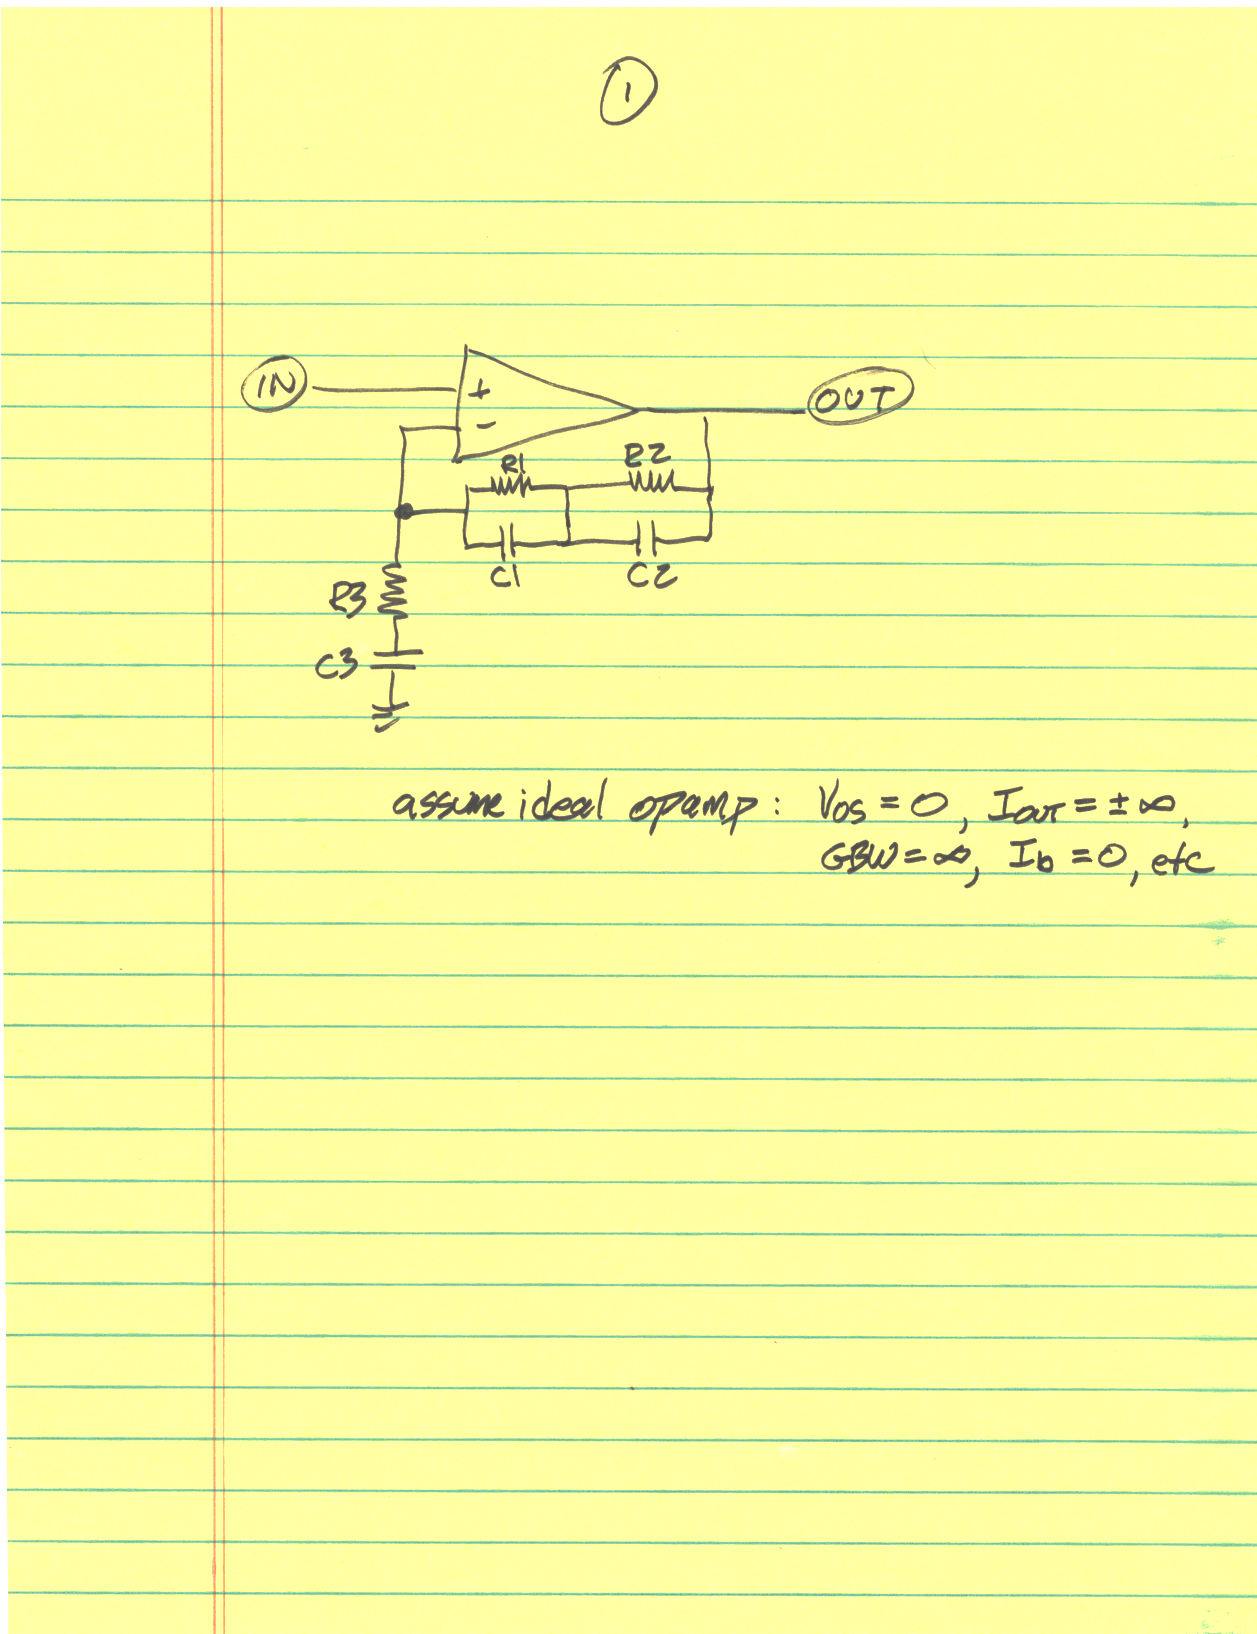 1
IN
+
-
OUT
R1
R2
C1
C2
R3
C3
assume ideal opamp: Vos = 0, Iout = ± ∞,
GBW = ∞, Ib = 0, etc